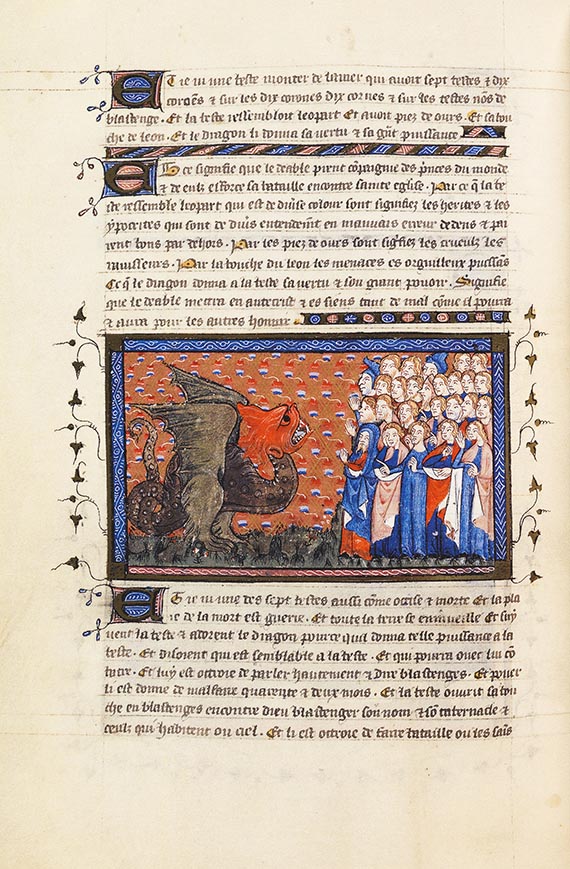 Et ie ui une beste monter de la mer qui auoit sept testes ⁊ dix
cornes ⁊ sur les dix corones dix cornes ⁊ sur les testes nōs de
blastenge. Et la beste ressembloit leopart Et auoit piez de ours. Et sa bou
che de leon. Et le dragon li donna sa vertu ⁊ sa gñt puissance
Et ce signifie que le deable prent cōpaignie des p̃nces du monde
⁊ de eulz efforce sa bataille encontre sainte eglise. Par ce q̃ la be
ste ressemble liepart qui est de diũse colour sont signifiez les herites ⁊ les
ypocrites qui sont de diũs entendemẽt en mauuais erreur dedens ⁊ pa
rent bons par dehors. Par les piez de ours sont sig̃fiez les crueulz les
rauisseurs. Par la bouche du leon les menaces es orguilleux puissãs
Ce q̃ le dragon donna a la beste sa vertu ⁊ son grant pouoir. Signifie
que le deable mettra en antecrist ⁊ es siens tant de mal cōme il pourra
⁊ aura pour les autres honnir
Et ie ui une des sept testes aussi cōme occise ⁊ morte Et la pla
ie de la mort est guerie. Et toute la terre se enmerueille Et siry
uent la beste ⁊ adorent le dragon pource quil donna telle puissance a la
beste. Et disoient qui est semblable a la beste. Et qui pourra ouec lui cō
batre. Et luy est octroie de parler hautement ⁊ dire blastenges. Et pouer
li est donne de malfaire quarente ⁊ deux mois. Et la beste ouurit sa bou
che en blastenges encontre dieu blastenger son nom ⁊ sō tabernacle ⁊
ceulz qui habitent ou ciel. Et li est octroie de faire bataille ou les saīs